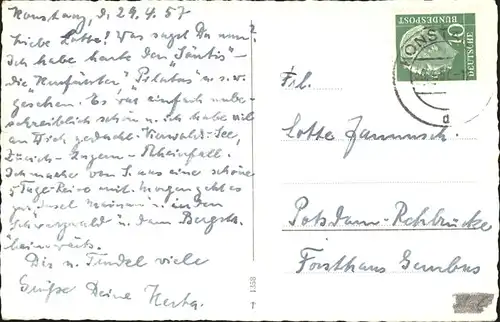 Konstanz, d. 29.4.57
Liebe Lotte! Was sagst Du nun?
Ich habe heute den "Säntis"-
die "Kurfürsten" "Pilatus" u.s.w.
gesehen. Es war einfach unbe-
schreiblich schön u. ich habe viel
an Dich gedacht. Vierwald-See,
Zürich- Luzern- Rheinfall.
Ich mache von S. aus eine schöne
5 Tage-Reise mit. Morgen geht es
zur Insel Mainau u. in den
Schwarzwald u. dann Bergstr.
heimwärts.
Dir u. viele
Grüße Deine Herta.
Frl.
Lotte
Potsdam-Rehbrücke
Forsthaus
DEUTSCHE
BUNDESPOST
10
KONST
a
1358